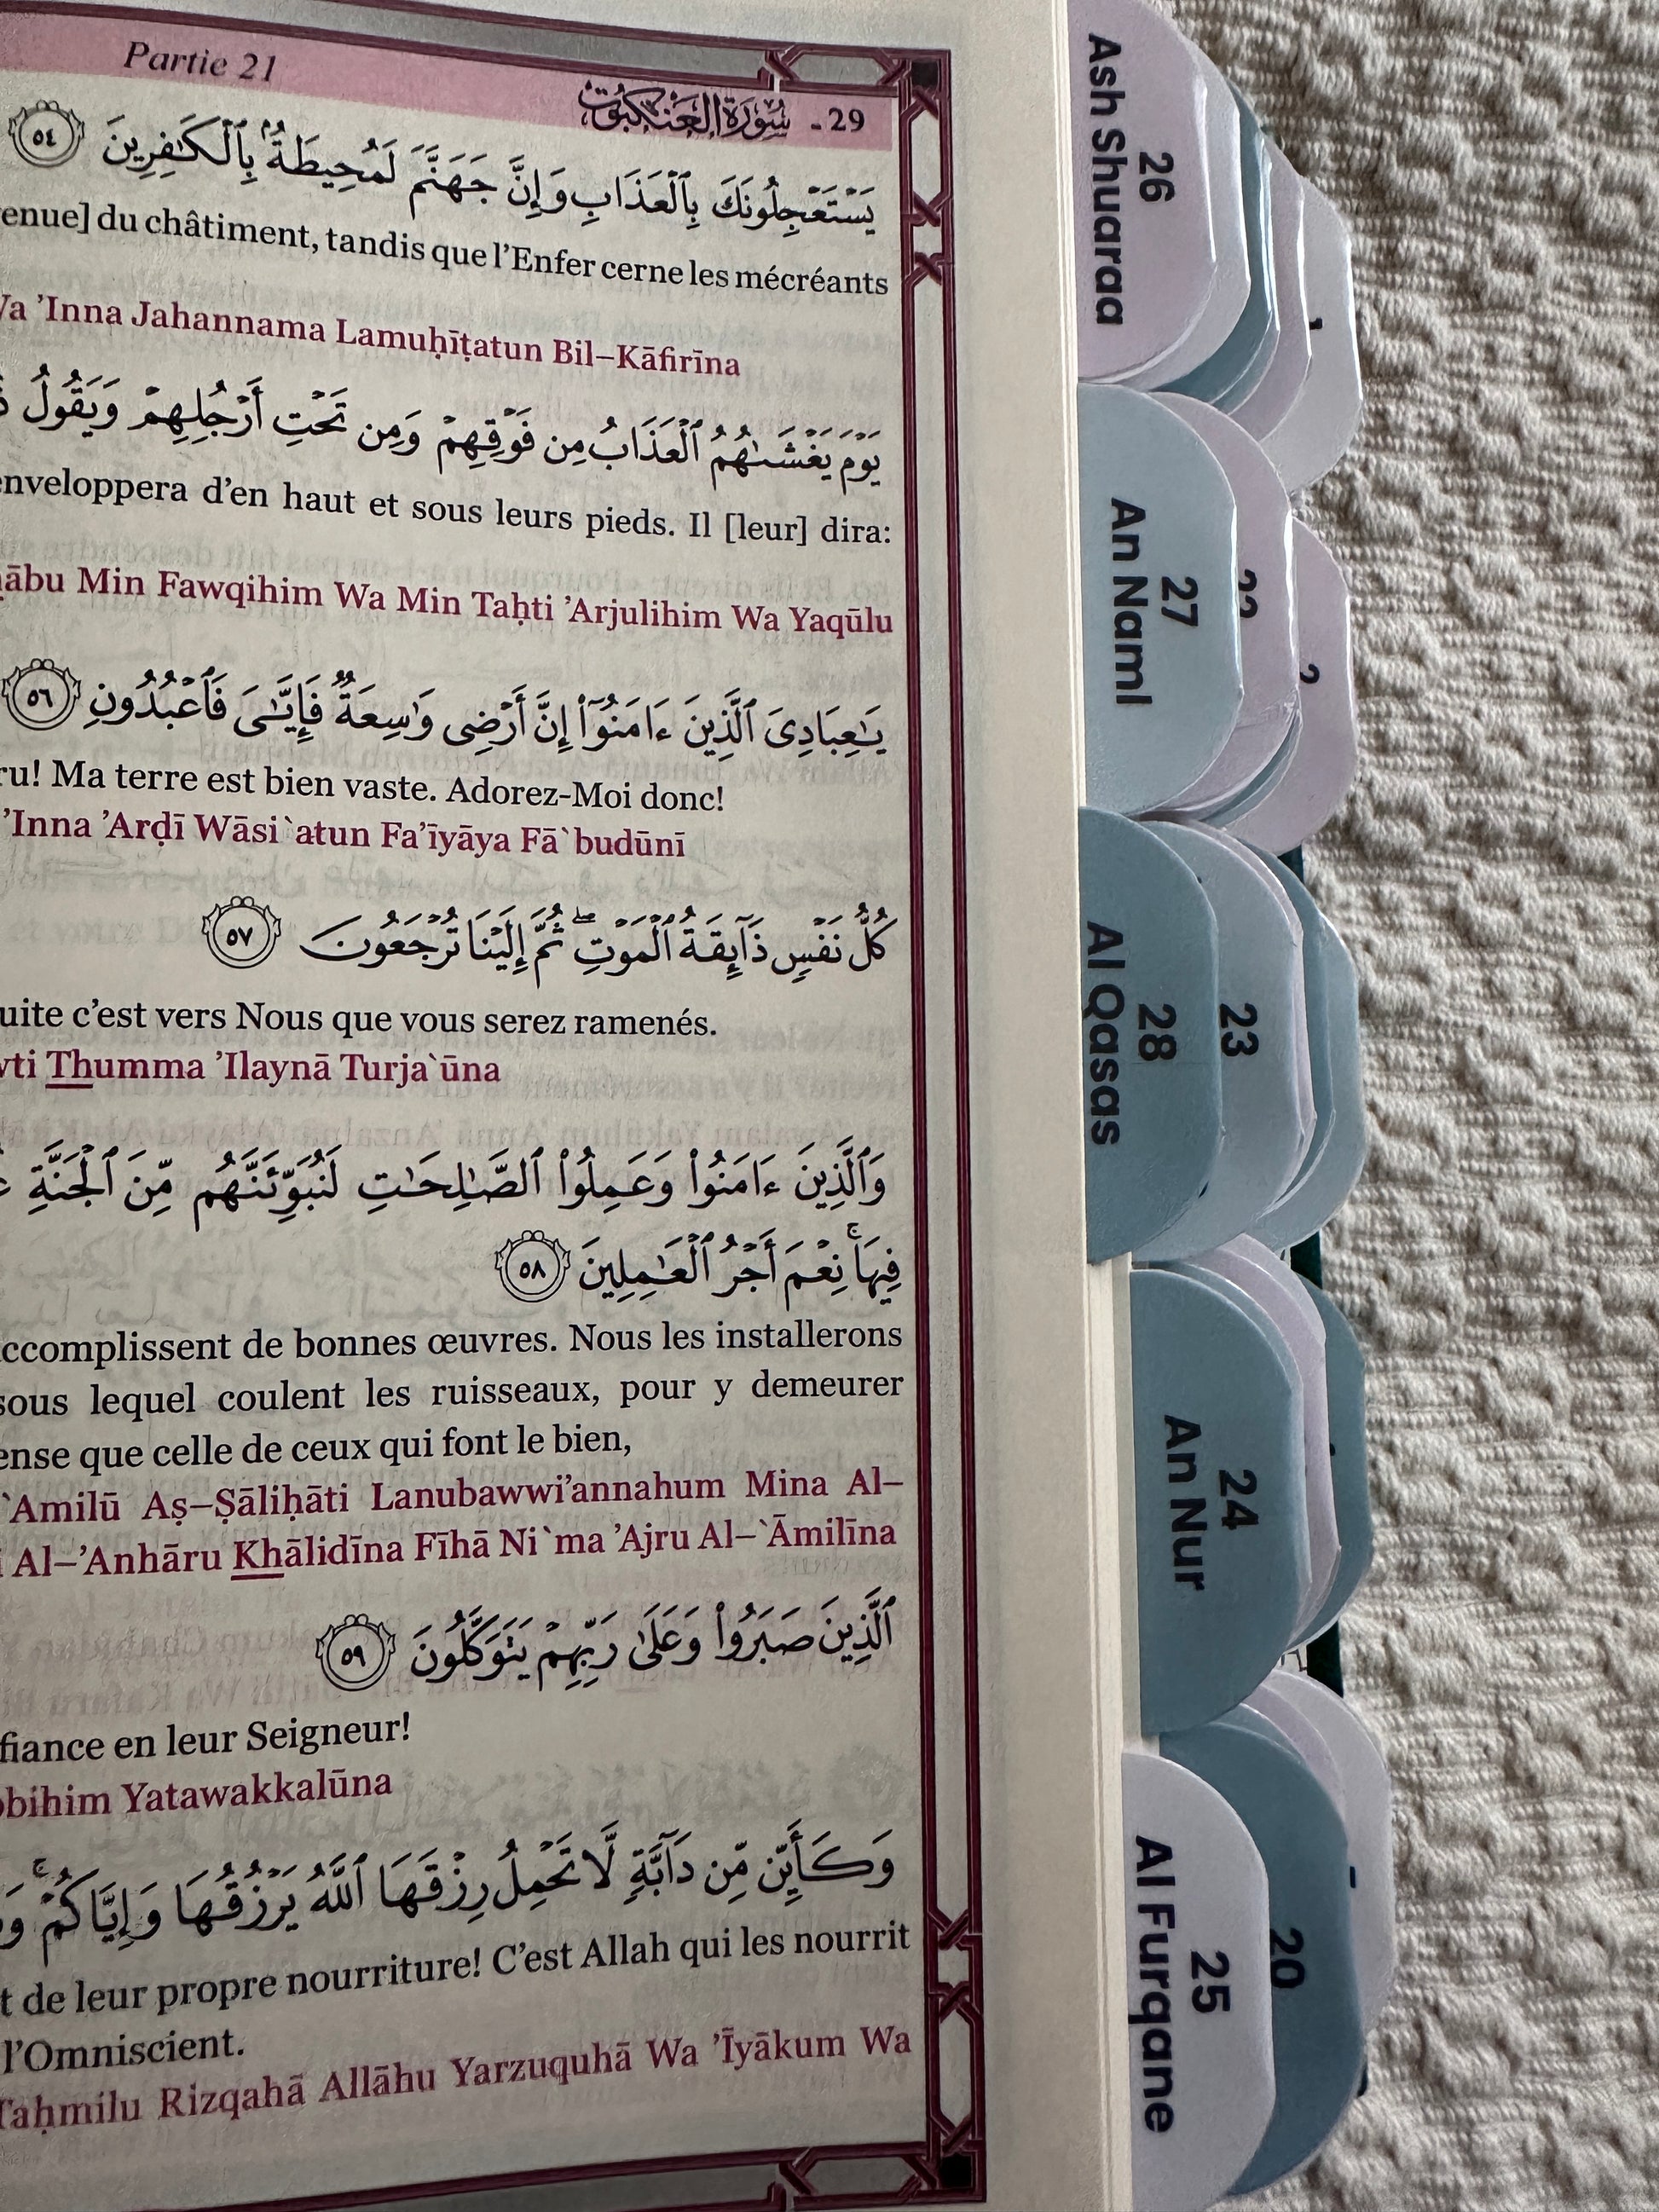 Partie 21
29 - سُورَةُ العَنكَبُوت
يَسْتَعْجِلُونَكَ بِٱلْعَذَابِ وَإِنَّ جَهَنَّمَ لَمُحِيطَةٌۢ بِٱلْكَـٰفِرِينَ ٥٤
du châtiment, tandis que l’Enfer cerne les mécréants
’Inna Jahannama Lamuḥīṭatun Bil–Kāfirīna
يَوْمَ يَغْشَىٰهُمُ ٱلْعَذَابُ مِن فَوْقِهِمْ وَمِن تَحْتِ أَرْجُلِهِمْ وَيَقُولُ
enveloppera d’en haut et sous leurs pieds. Il [leur] dira:
Min Fawqihim Wa Min Taḥti ’Arjulihim Wa Yaqūlu
يَـٰعِبَادِىَ ٱلَّذِينَ ءَامَنُوٓا۟ إِنَّ أَرْضِى وَٰسِعَةٌ فَإِيَّـٰىَ فَٱعْبُدُونِ ٥٦
Ma terre est bien vaste. Adorez-Moi donc!
’Inna ’Arḍī Wāsi`atun Fa’īyāya Fā`budūnī
كُلُّ نَفْسٍ ذَآئِقَةُ ٱلْمَوْتِ ۖ ثُمَّ إِلَيْنَا تُرْجَعُونَ ٥٧
c’est vers Nous que vous serez ramenés.
Thumma ’Ilaynā Turja`ūna
وَٱلَّذِينَ ءَامَنُوا۟ وَعَمِلُوا۟ ٱلصَّـٰلِحَـٰتِ لَنُبَوِّئَنَّهُم مِّنَ ٱلْجَنَّةِ
فِيهَا ۚ نِعْمَ أَجْرُ ٱلْعَـٰمِلِينَ ٥٨
accomplissent de bonnes œuvres. Nous les installerons
sous lequel coulent les ruisseaux, pour y demeurer
que celle de ceux qui font le bien,
`Amilū Aṣ–Ṣāliḥāti Lanubawwi’annahum Mina Al–
Al–’Anhāru Khālidīna Fīhā Ni`ma ’Ajru Al–`Āmilīna
ٱلَّذِينَ صَبَرُوا۟ وَعَلَىٰ رَبِّهِمْ يَتَوَكَّلُونَ ٥٩
en leur Seigneur!
Yatawakkalūna
وَكَأَيِّن مِّن دَآبَّةٍ لَّا تَحْمِلُ رِزْقَهَا ٱللَّهُ يَرْزُقُهَا وَإِيَّاكُمْ ۚ
de leur propre nourriture! C’est Allah qui les nourrit
l’Omniscient.
Taḥmilu Rizqahā Allāhu Yarzuquhā Wa ’Īyākum Wa
26
Ash Shuaraa
1
27
An Naml
22
2
28
Al Qasas
23
24
An Nur
25
Al Furqane
20